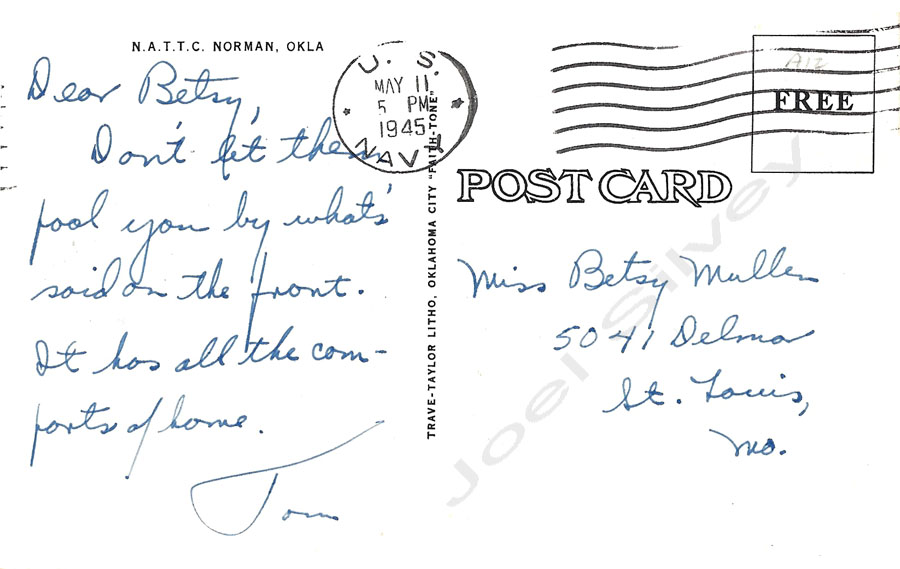 N.A.T.T.C. NORMAN, OKLA
Dear Betsy,
Don't let them
fool you by what's
said on the front.
It has all the com-
forts of home.
Tom
TRAVE-TAYLOR LITHO, OKLAHOMA CITY "FAITH-TONE"
U. S.
MAY 11
5 PM
1945
NAVY
A12
FREE
POST CARD
Miss Betsy Mullen
5041 Delmar
St. Louis,
Mo.
Joel Silvey